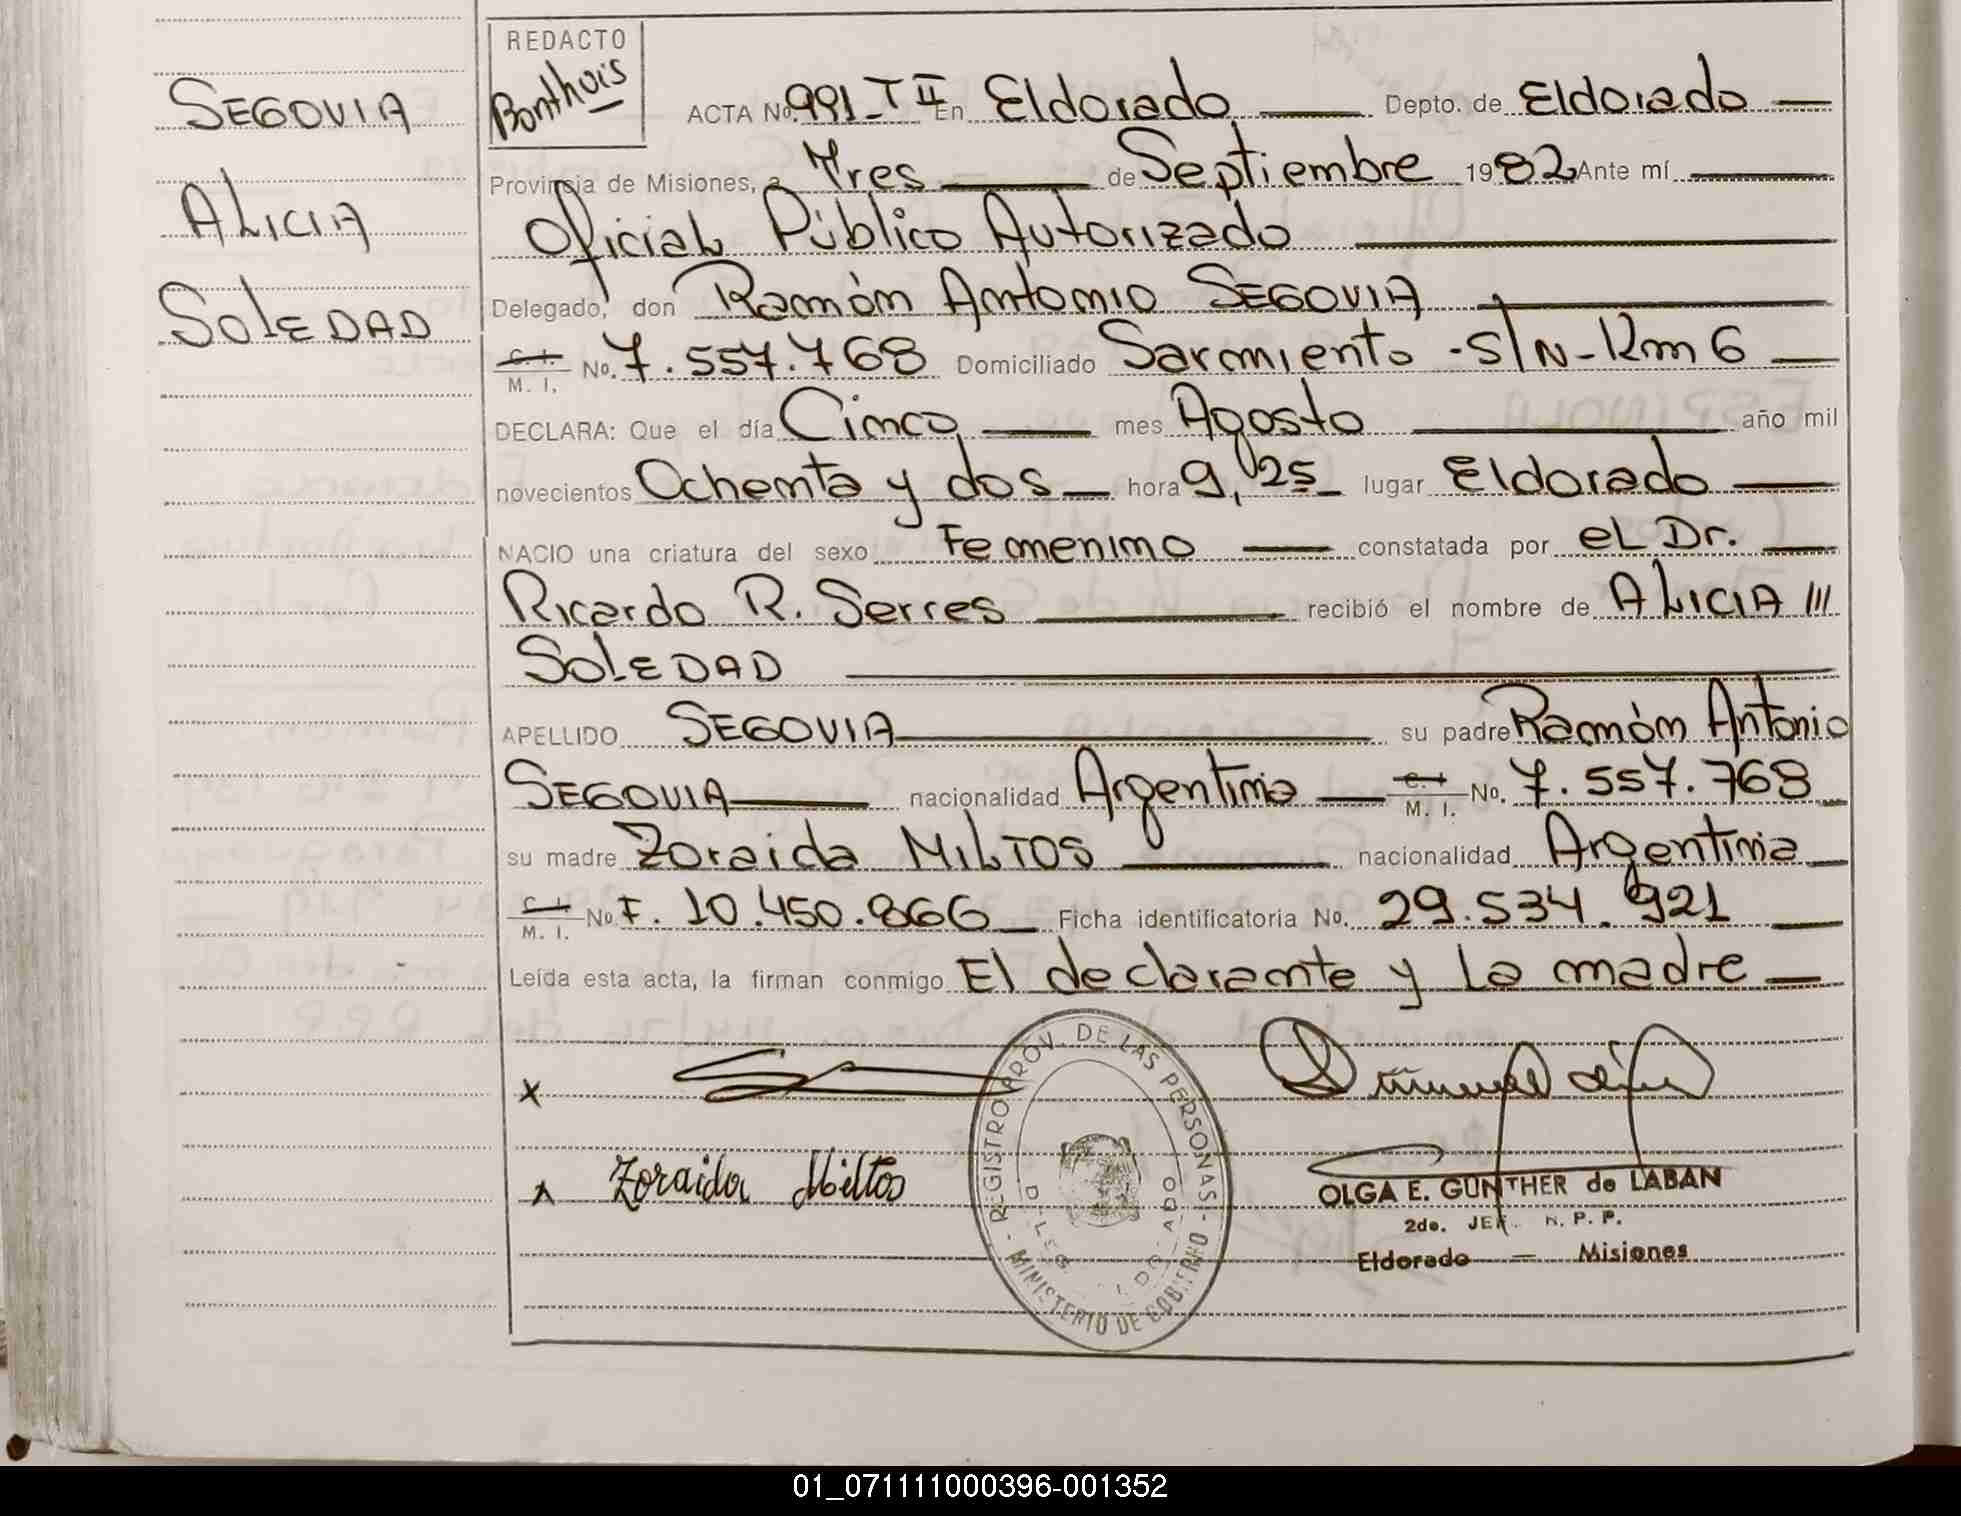 SEGOVIA
ALICIA
SOLEDAD
REDACTO
Bonthuis
ACTA No. 991-T II En Eldorado Depto. de Eldorado
Provincia de Misiones, a Tres de Septiembre 1982 Ante mí
Oficial Público Autorizado
Delegado, don Ramón Antonio SEGOVIA
C. I. M. I. No. 7.557.768 Domiciliado Sarmiento - S/N - Km 6
DECLARA: Que el día Cinco mes Agosto año mil
novecientos Ochenta y dos hora 9,25 lugar Eldorado
NACIO una criatura del sexo Femenino constatada por el Dr.
Ricardo R. Serres recibió el nombre de ALICIA
SOLEDAD
APELLIDO SEGOVIA su padre Ramón Antonio
SEGOVIA nacionalidad Argentina C. I. M. I. No. 7.557.768
su madre Zoraida MILTOS nacionalidad Argentina
C. I. M. I. No F. 10.450.866 Ficha identificatoria No. 29.534.921
Leída esta acta, la firman conmigo El declarante y la madre
x
x Zoraida Miltos
REGISTRO PROV. DE LAS PERSONAS - MINISTERIO DE GOBIERNO
OLGA E. GUNTHER de LABAN
2do. JEF. R. P. P.
Eldorado — Misiones
01_071111000396-001352